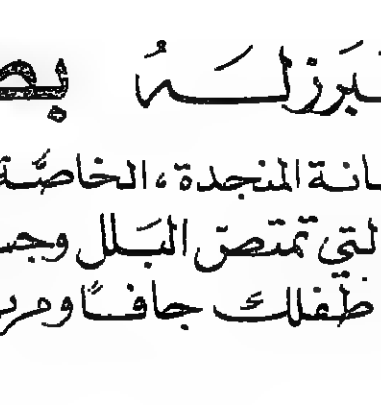 ـبَرز لهُ بصـ
ـانة المنجدة، الخاصّة
لتي تمتصّ البَلل وجسـ
طفلك جافًا ومر